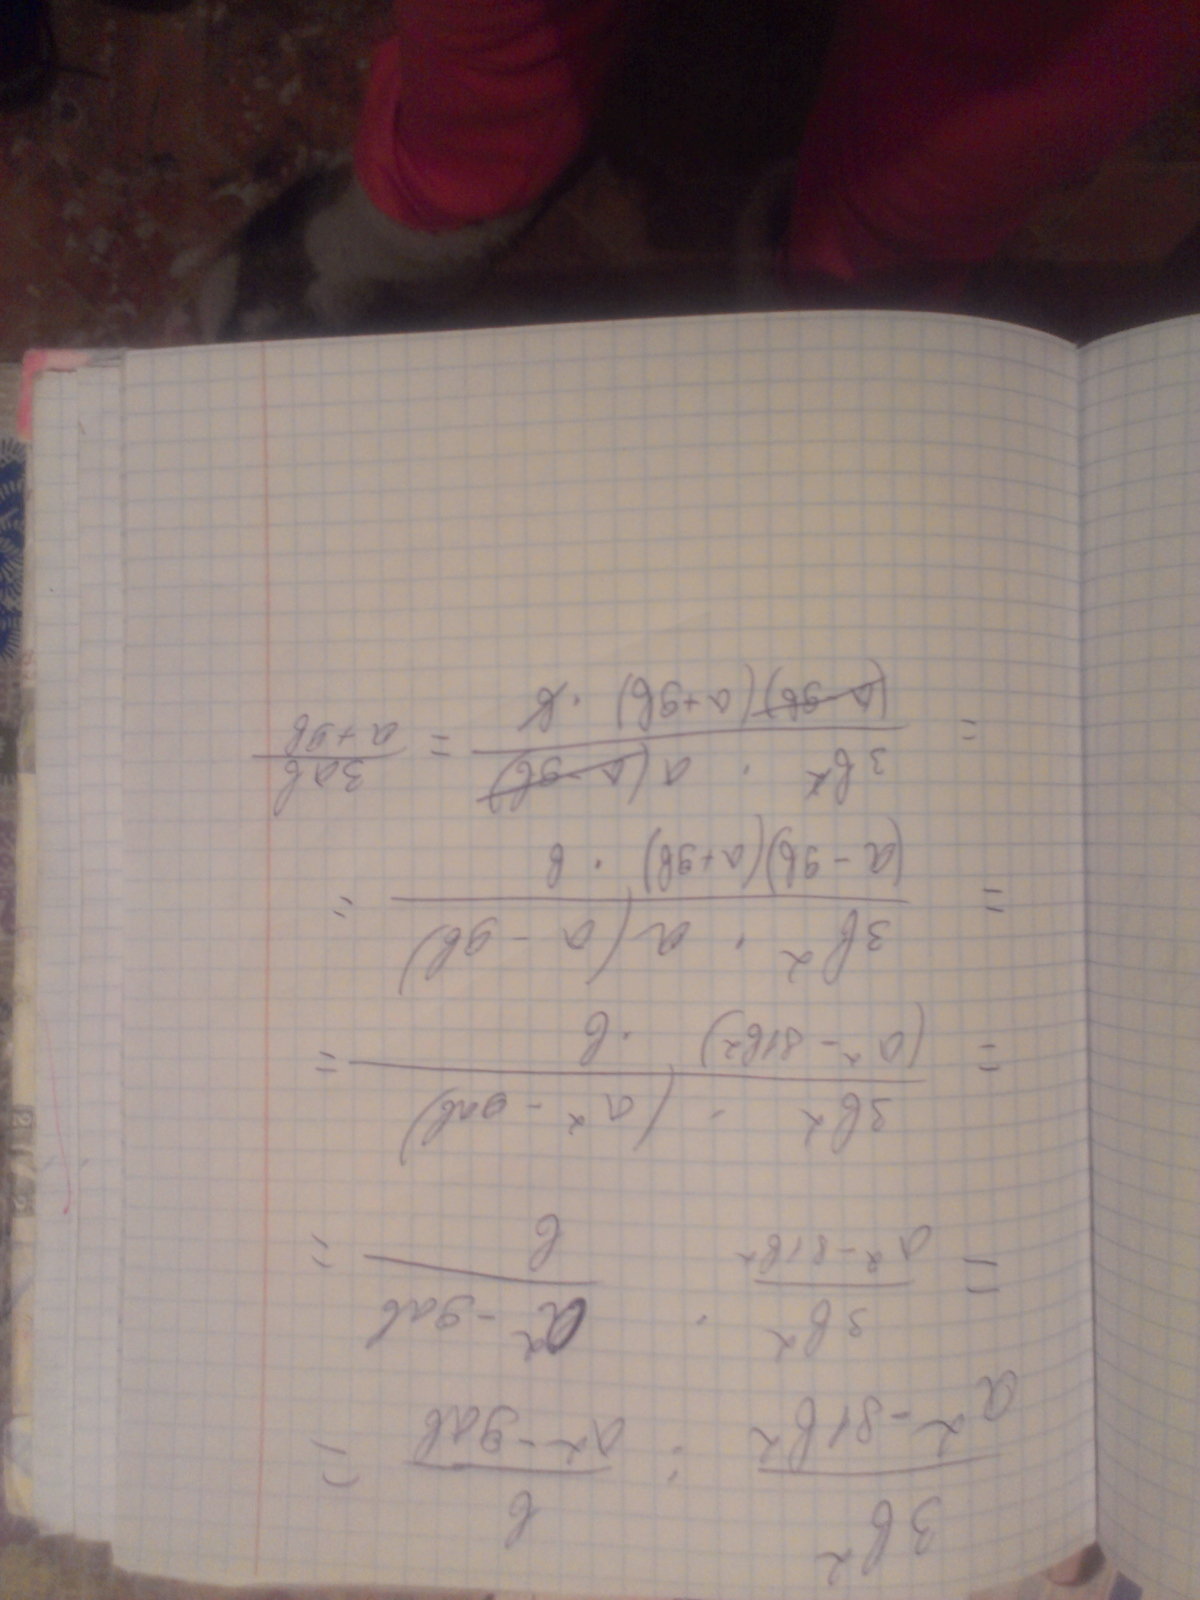 3b² / (a² - 81b²) : b / (a² - 9ab) =
= 3b² / (a² - 81b²) · (a² - 9ab) / b =
= 3b² · (a² - 9ab) / (a² - 81b²) · b =
= 3b² · a(a - 9b) / (a - 9b)(a + 9b) · b =
= 3b² · a(a - 9b) / (a - 9b)(a + 9b) · b = 3ab / a + 9b